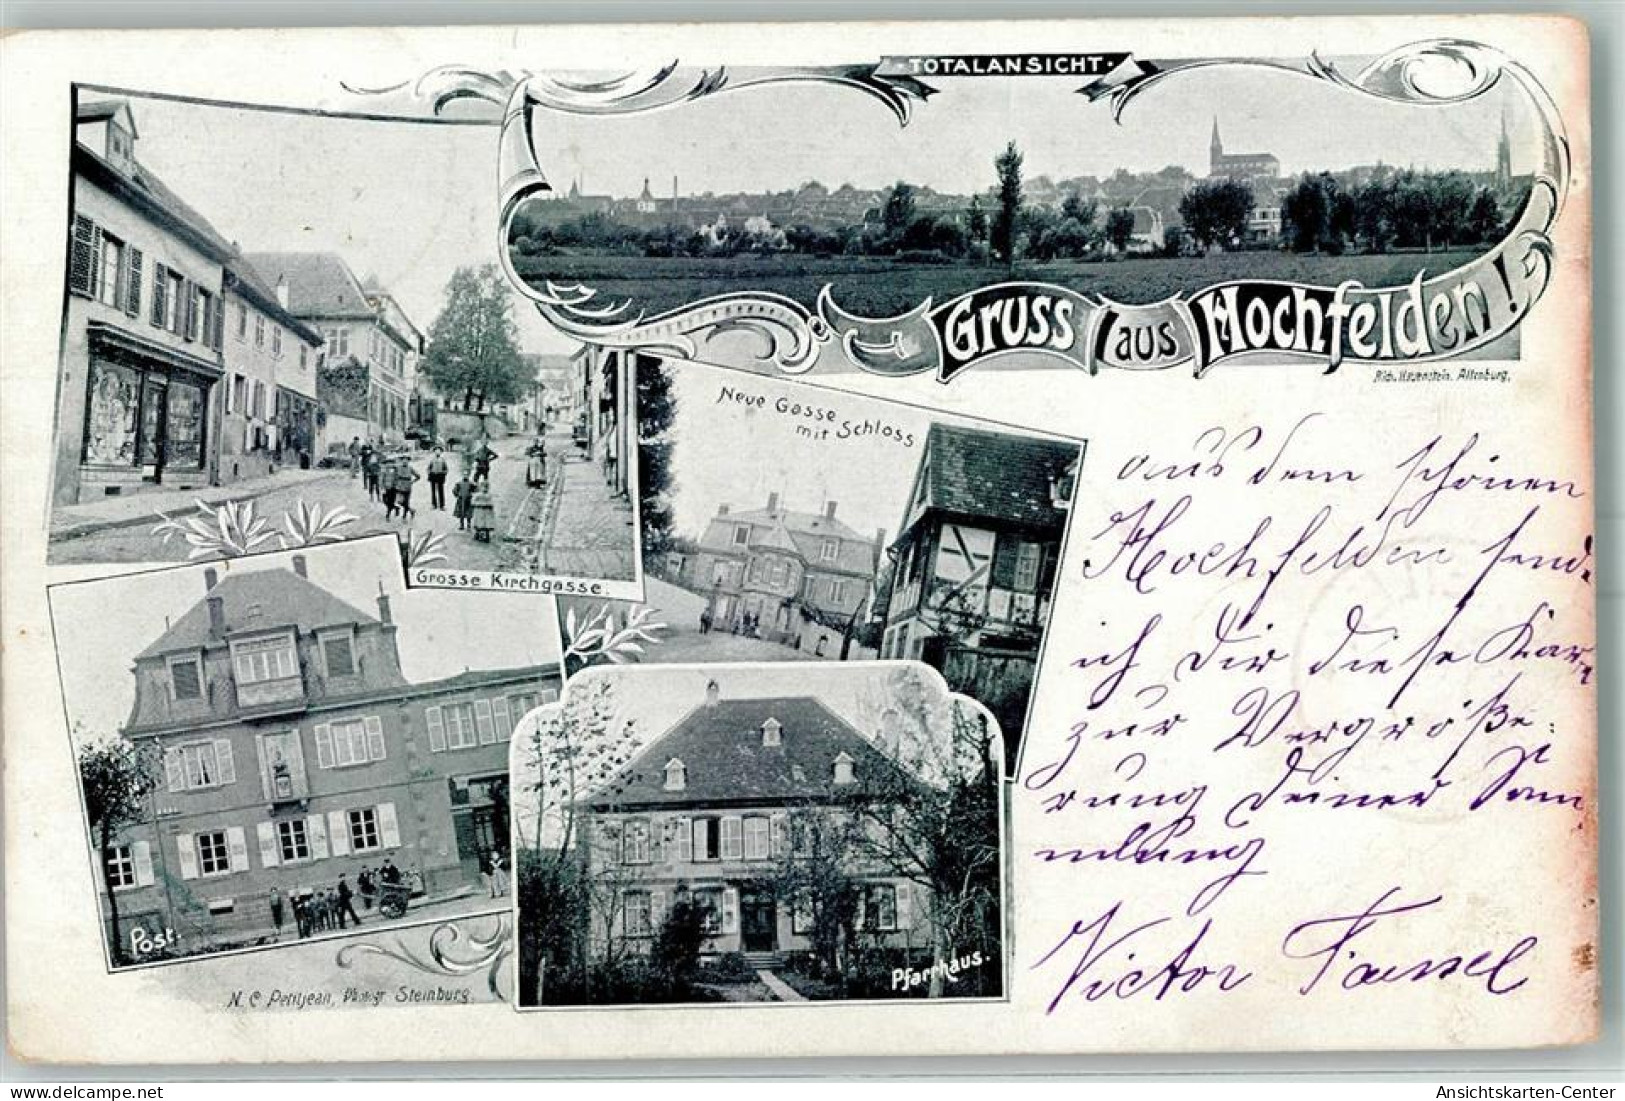 ·TOTALANSICHT·
Gruss aus Hochfelden!
Rich. Hasenstein. Altenburg.
Grosse Kirchgasse.
Neue Gasse
mit Schloss
Post.
Pfarrhaus.
N. C. Petitjean, Photogr Steinburg.
aus dem schönen
Hochfelden send.
ich Dir diese Kar.
zur Vergröße:
rung Deiner Sam
mlung
Victor
Ansichtskarten-Center